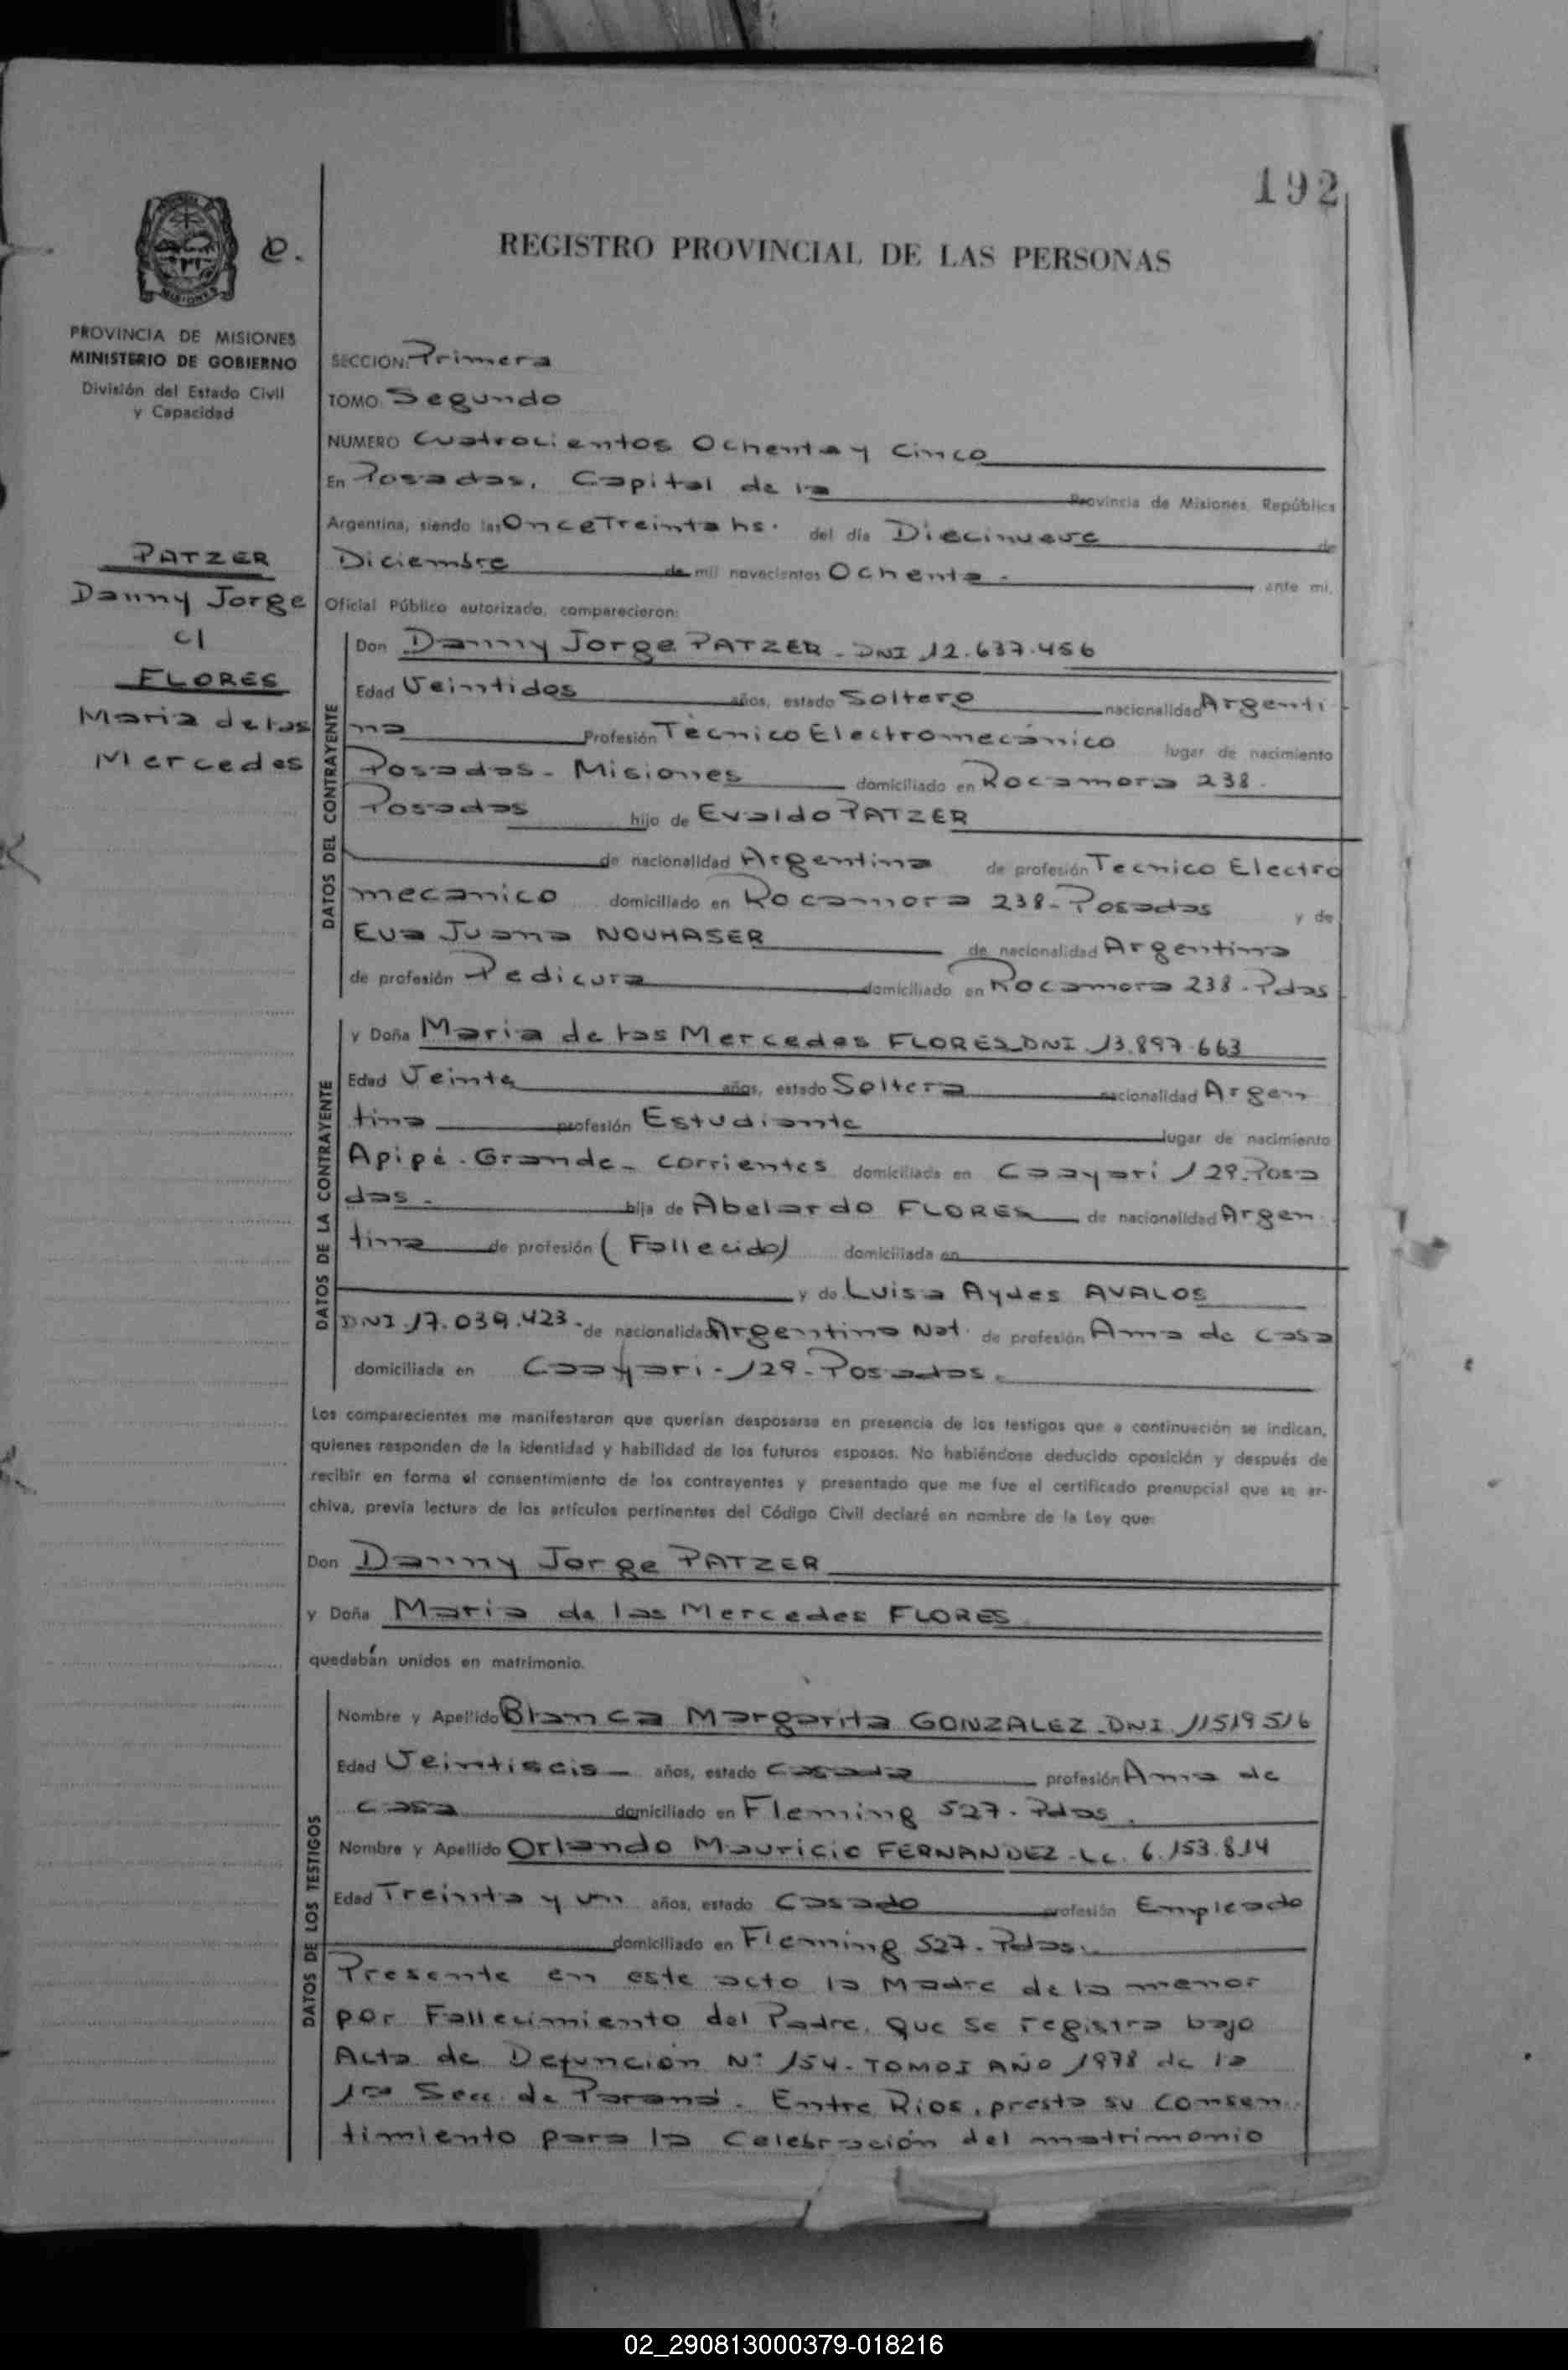 192
REGISTRO PROVINCIAL DE LAS PERSONAS
MISIONES
e.
PROVINCIA DE MISIONES
MINISTERIO DE GOBIERNO
División del Estado Civil
y Capacidad
PATZER
Danny Jorge
c/
FLORES
Maria de las
Mercedes
SECCION: Primera
TOMO Segundo
NUMERO Cuatrocientos Ochenta y Cinco
En Posadas, Capital de la Provincia de Misiones, República
Argentina, siendo las Once Treinta hs. del día Diecinueve de
Diciembre de mil novecientos Ochenta. ante mi,
Oficial Público autorizado, comparecieron:
DATOS DEL CONTRAYENTE
Don Danny Jorge PATZER - DNI 12.637.456
Edad Veintidos años, estado Soltero nacionalidad Argenti
na Profesión Tècnico Electromecànico lugar de nacimiento
Posadas - Misiones domiciliado en Rocamora 238.
Posadas hijo de Evaldo PATZER
de nacionalidad Argentina de profesión Tecnico Electro
mecanico domiciliado en Rocamora 238 - Posadas y de
Eva Juana NOUHASER de nacionalidad Argentina
de profesión Pedicura domiciliado en Rocamora 238 - Pdas
DATOS DE LA CONTRAYENTE
y Doña Maria de las Mercedes FLORES DNI 13.897.663
Edad Veinte años, estado Soltera nacionalidad Argen
tina profesión Estudiante lugar de nacimiento
Apipé - Grande - Corrientes domiciliada en Caayari 129 - Posa
das - hija de Abelardo FLORES de nacionalidad Argen
tina de profesión (Fallecido) domiciliada en
y de Luisa Aydes AVALOS
DNI 17.039.423 - de nacionalidad Argentina Nat. de profesión Ama de casa
domiciliada en Caayari - 129 - Posadas.
Los comparecientes me manifestaron que querían desposarse en presencia de los testigos que a continuación se indican,
quienes responden de la identidad y habilidad de los futuros esposos. No habiéndose deducido oposición y después de
recibir en forma el consentimiento de los contrayentes y presentado que me fue el certificado prenupcial que se ar-
chiva, previa lectura de los artículos pertinentes del Código Civil declaré en nombre de la Ley que:
Don Danny Jorge PATZER
y Doña Maria de las Mercedes FLORES
quedabán unidos en matrimonio.
DATOS DE LOS TESTIGOS
Nombre y Apellido Blanca Margarita GONZALEZ - DNI 11519516
Edad Veintiseis años, estado Casada profesión Ama de
casa domiciliado en Fleming 527 - Pdas.
Nombre y Apellido Orlando Mauricio FERNANDEZ - Lc. 6.153.814
Edad Treinta y un años, estado Casado profesión Empleado
domiciliado en Fleming 527 - Pdas.
Presente en este acto la Madre de la menor
por Fallecimiento del Padre, que se registra bajo
Acta de Defunción N° 154 - TOMO I AÑO 1978 de la
1ra Secc. de Paraná - Entre Rios, presta su consen
timiento para la Celebración del matrimonio
02_290813000379-018216